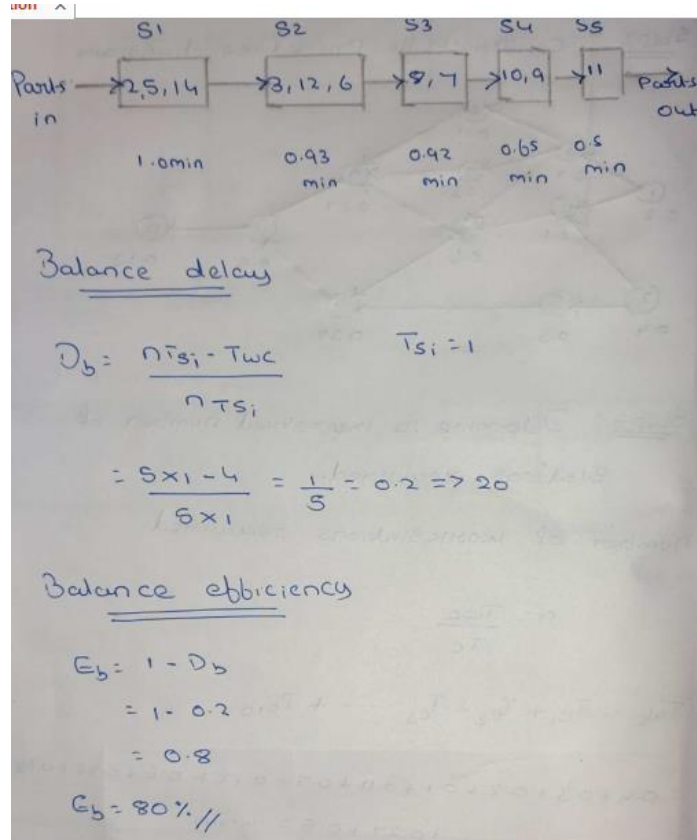 S1 S2 S3 S4 S5
Parts in 2,5,14 3,12,6 8,7 10,9 11 Parts out
1.0min 0.93 min 0.92 min 0.65 min 0.5 min
Balance delay
Db = nTsi - Twc / nTsi Tsi = 1
= 5x1-4 / 5x1 = 1/5 = 0.2 => 20
Balance efficiency
Eb = 1 - Db
= 1 - 0.2
= 0.8
Eb = 80% //